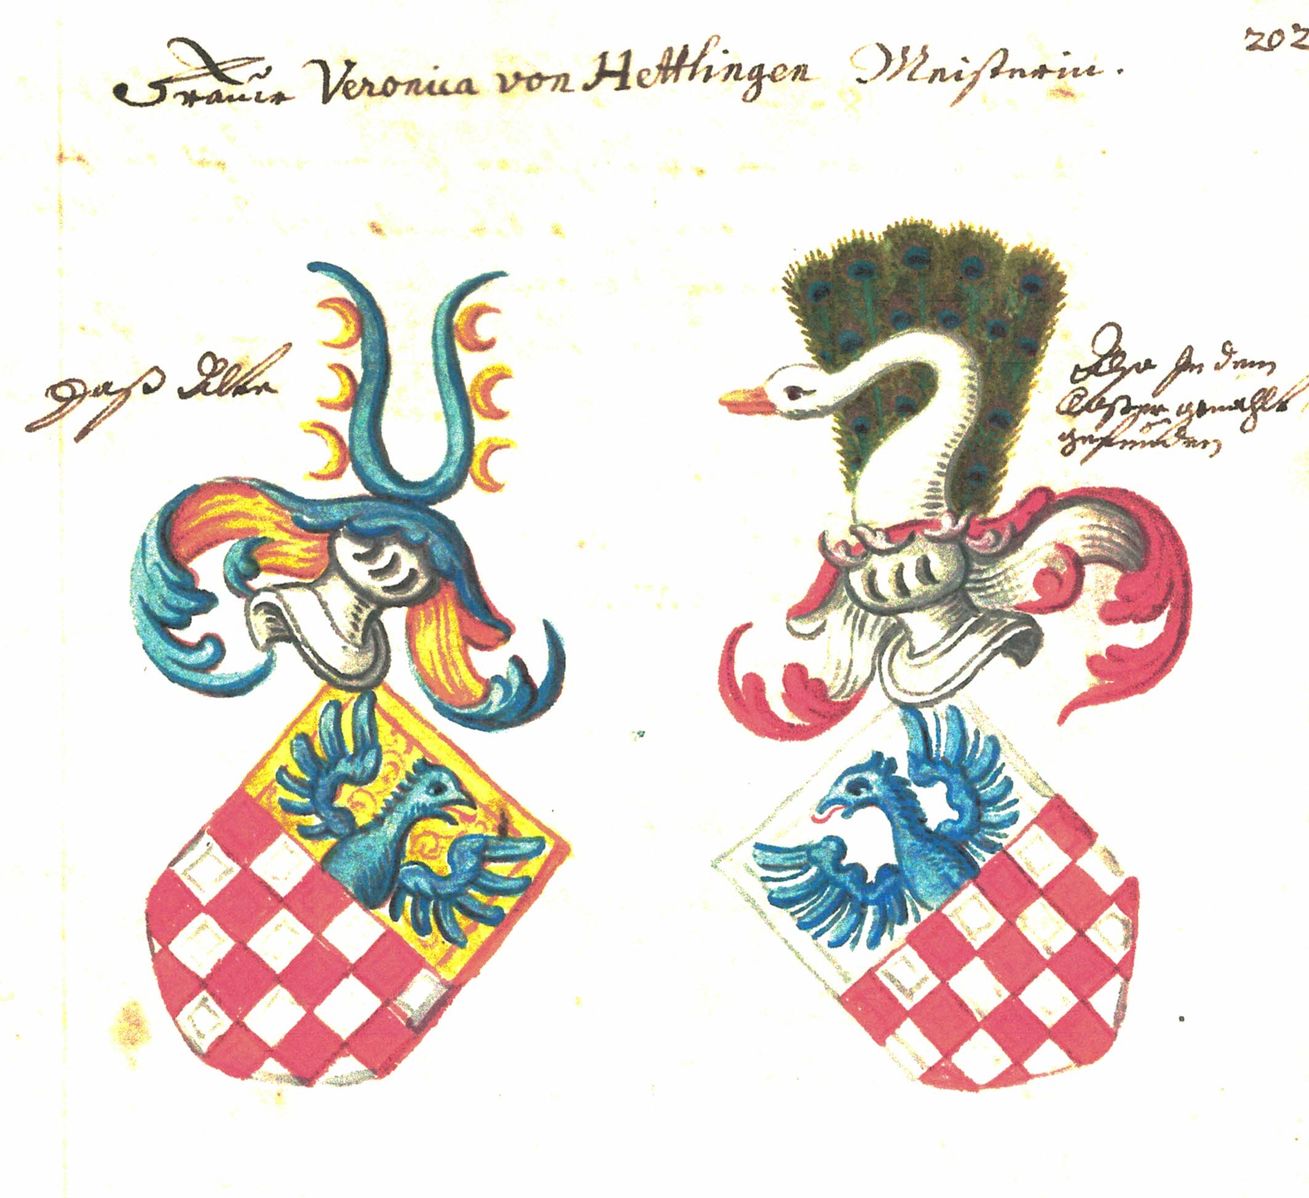 Frauw Veronica von Hettlingen Meisterin.
202
Daß Alte
Also In dem
Closter gemahlt
gefunden